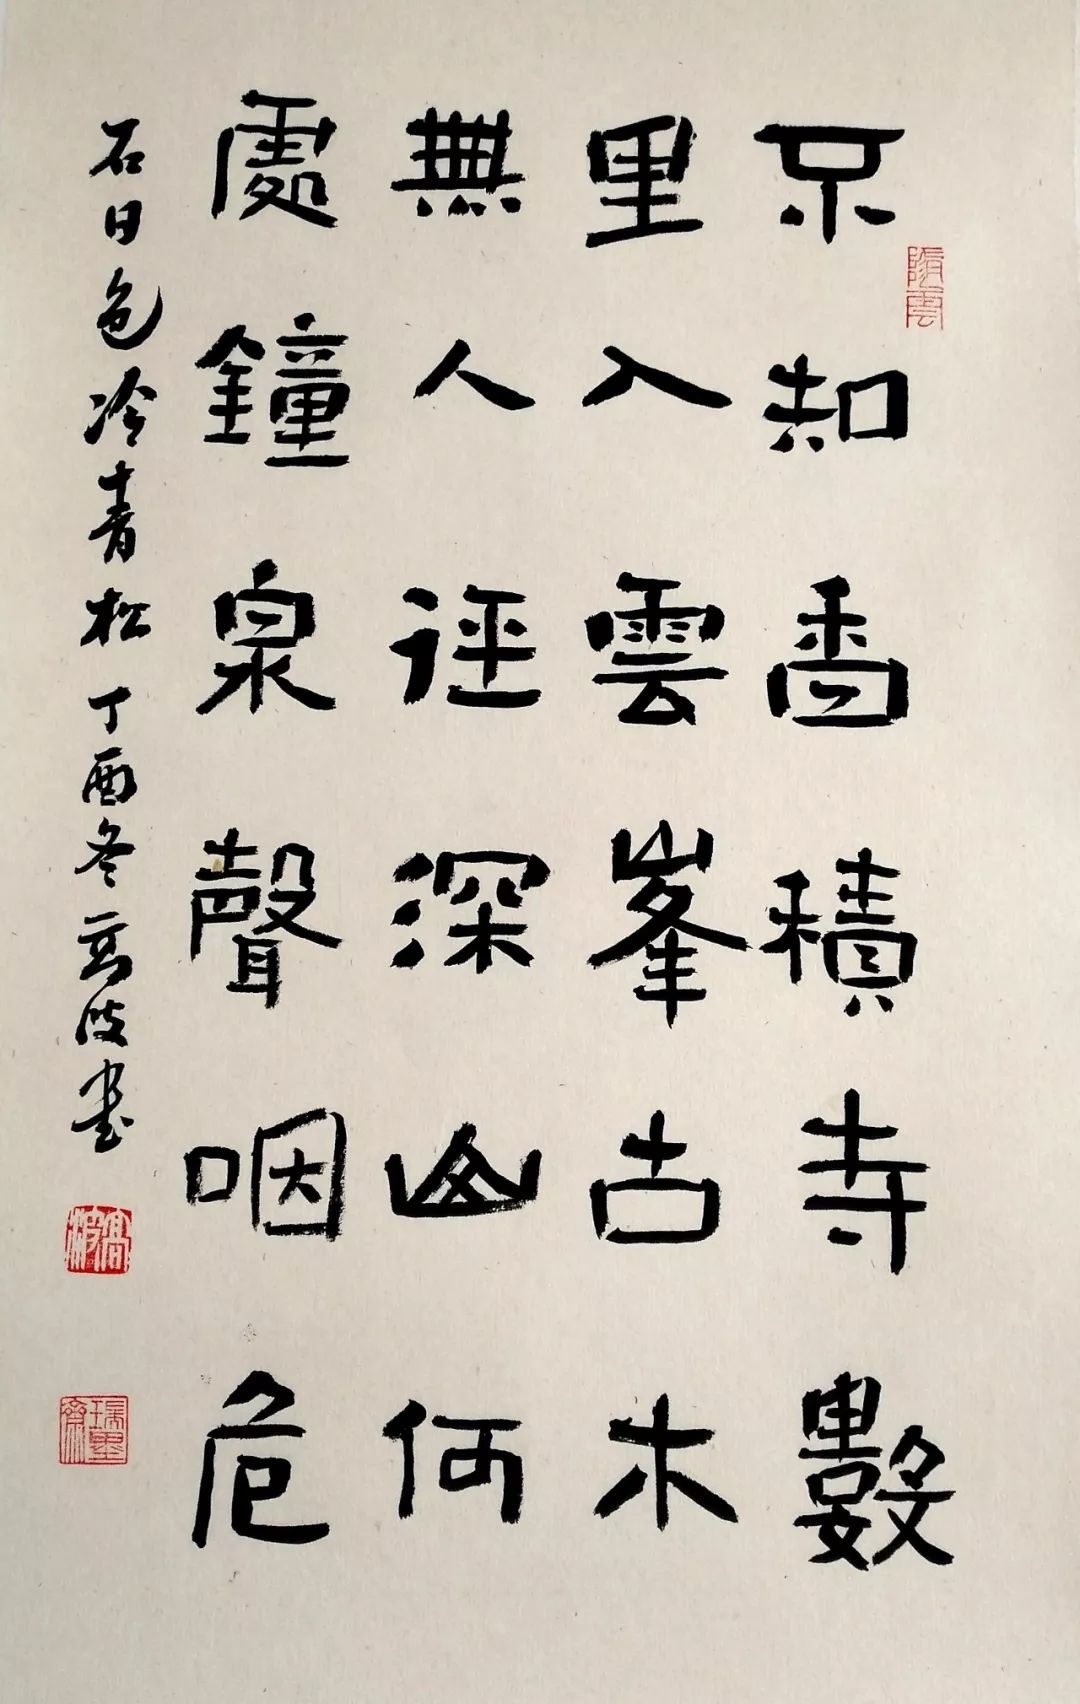 不知香積寺數
里入雲峯古木
無人徑深山何
處鐘泉聲咽危
石日色冷青松丁酉冬高波書
高波
瑞墨齋